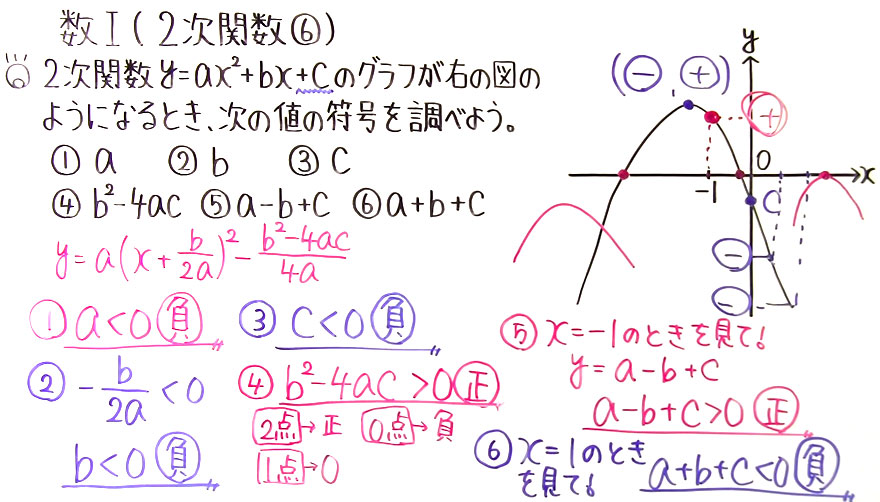 数Ⅰ(2次関数⑥)
2次関数y=ax²+bx+cのグラフが右の図の
ようになるとき、次の値の符号を調べよう。
① a ② b ③ c
④ b²-4ac ⑤ a-b+c ⑥ a+b+c
y=a(x+b/2a)²-b²-4ac/4a
① a<0 負
② -b/2a<0
b<0 負
③ c<0 負
④ b²-4ac>0 正
2点→正 0点→負
1点→0
y
(⊖, ⊕)
+
0
x
-1
c
-
-
⑤ x=-1のときを見て!
y=a-b+c
a-b+c>0 正
⑥ x=1のとき
を見て!
a+b+c<0 負